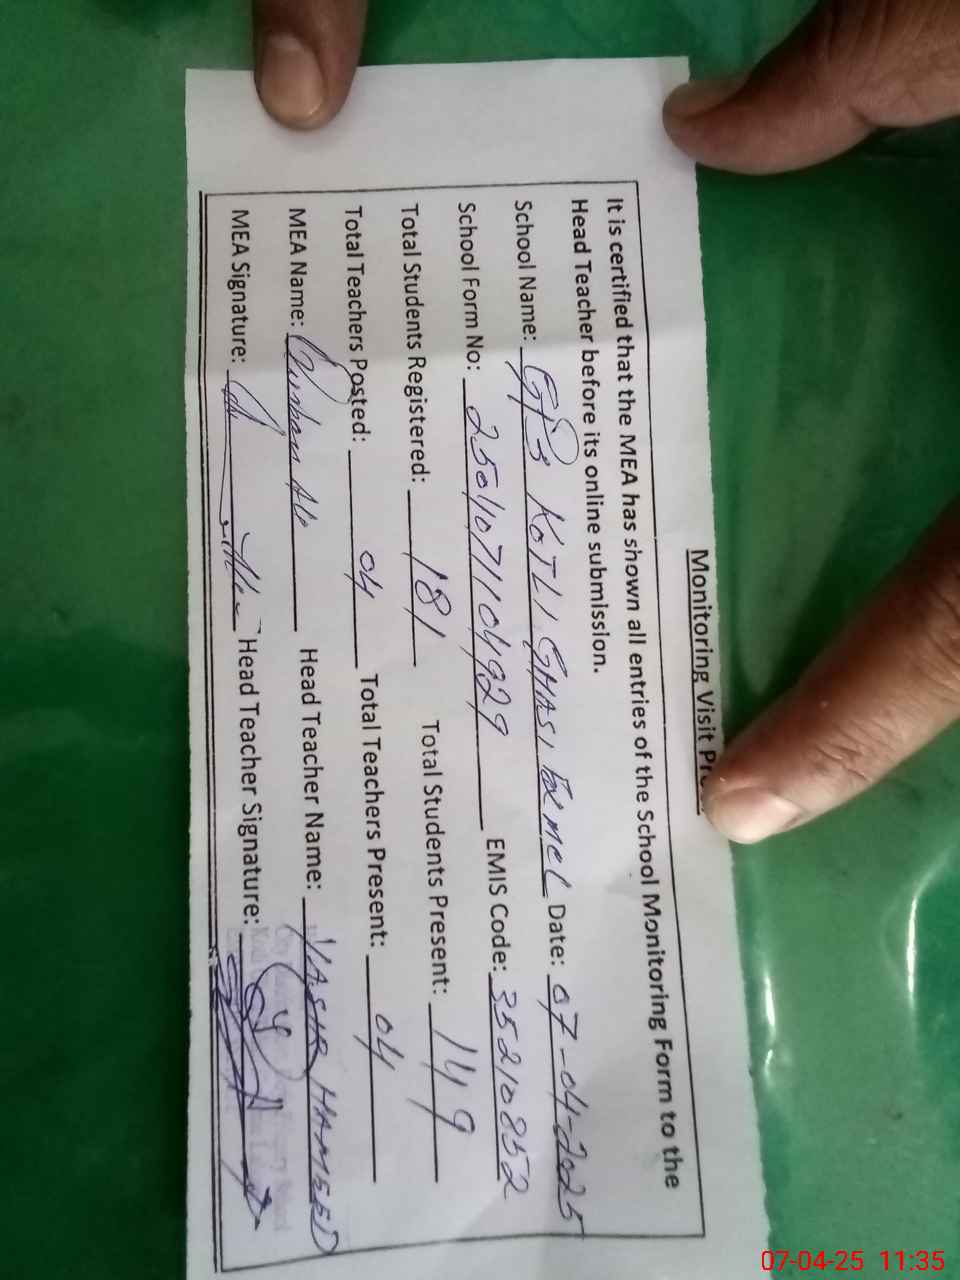 Monitoring Visit
It is certified that the MEA has shown all entries of the School Monitoring Form to the
Head Teacher before its online submission.
School Name: GPS KOTLI GHASI MCL Date: 07-04-2025
School Form No: EMIS Code: 35210852
Total Students Registered: 181 Total Students Present: 149
Total Teachers Posted: 04 Total Teachers Present: 04
MEA Name: Ali Head Teacher Name: YASIR HAMEED
MEA Signature: Head Teacher Signature:
07-04-25 11:35